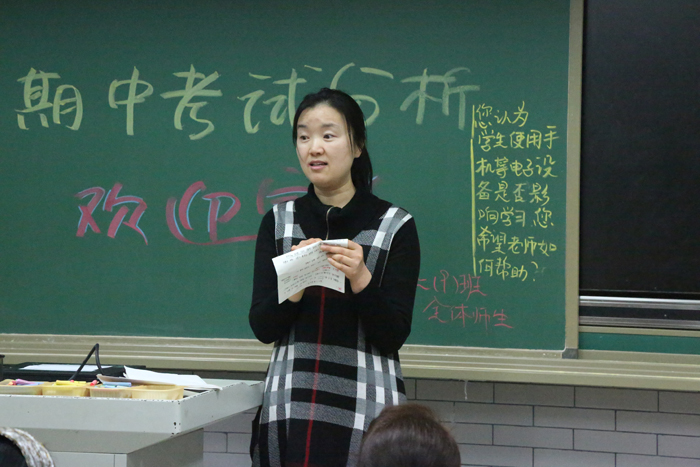 期中考试分析
欢迎
您认为
学生使用手
机等电子设
备是否影
响学习,您
希望老师如
何帮助?
(9)班
全体师生